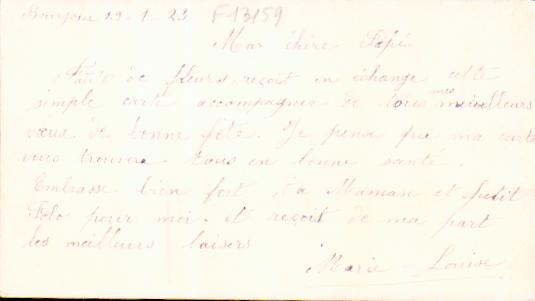 29-1-23 F13159
Ma chère Pépé
Faute de fleurs, reçoit en échange cette
simple carte accompagner de tous mes meilleurs
vœux de bonne fête. Je pense que ma carte
vous trouvera tous en bonne santé.
Embrasse bien fort ta Maman et petit
Lolo pour moi. et reçoit de ma part
les meilleurs baisers
Marie-Louise